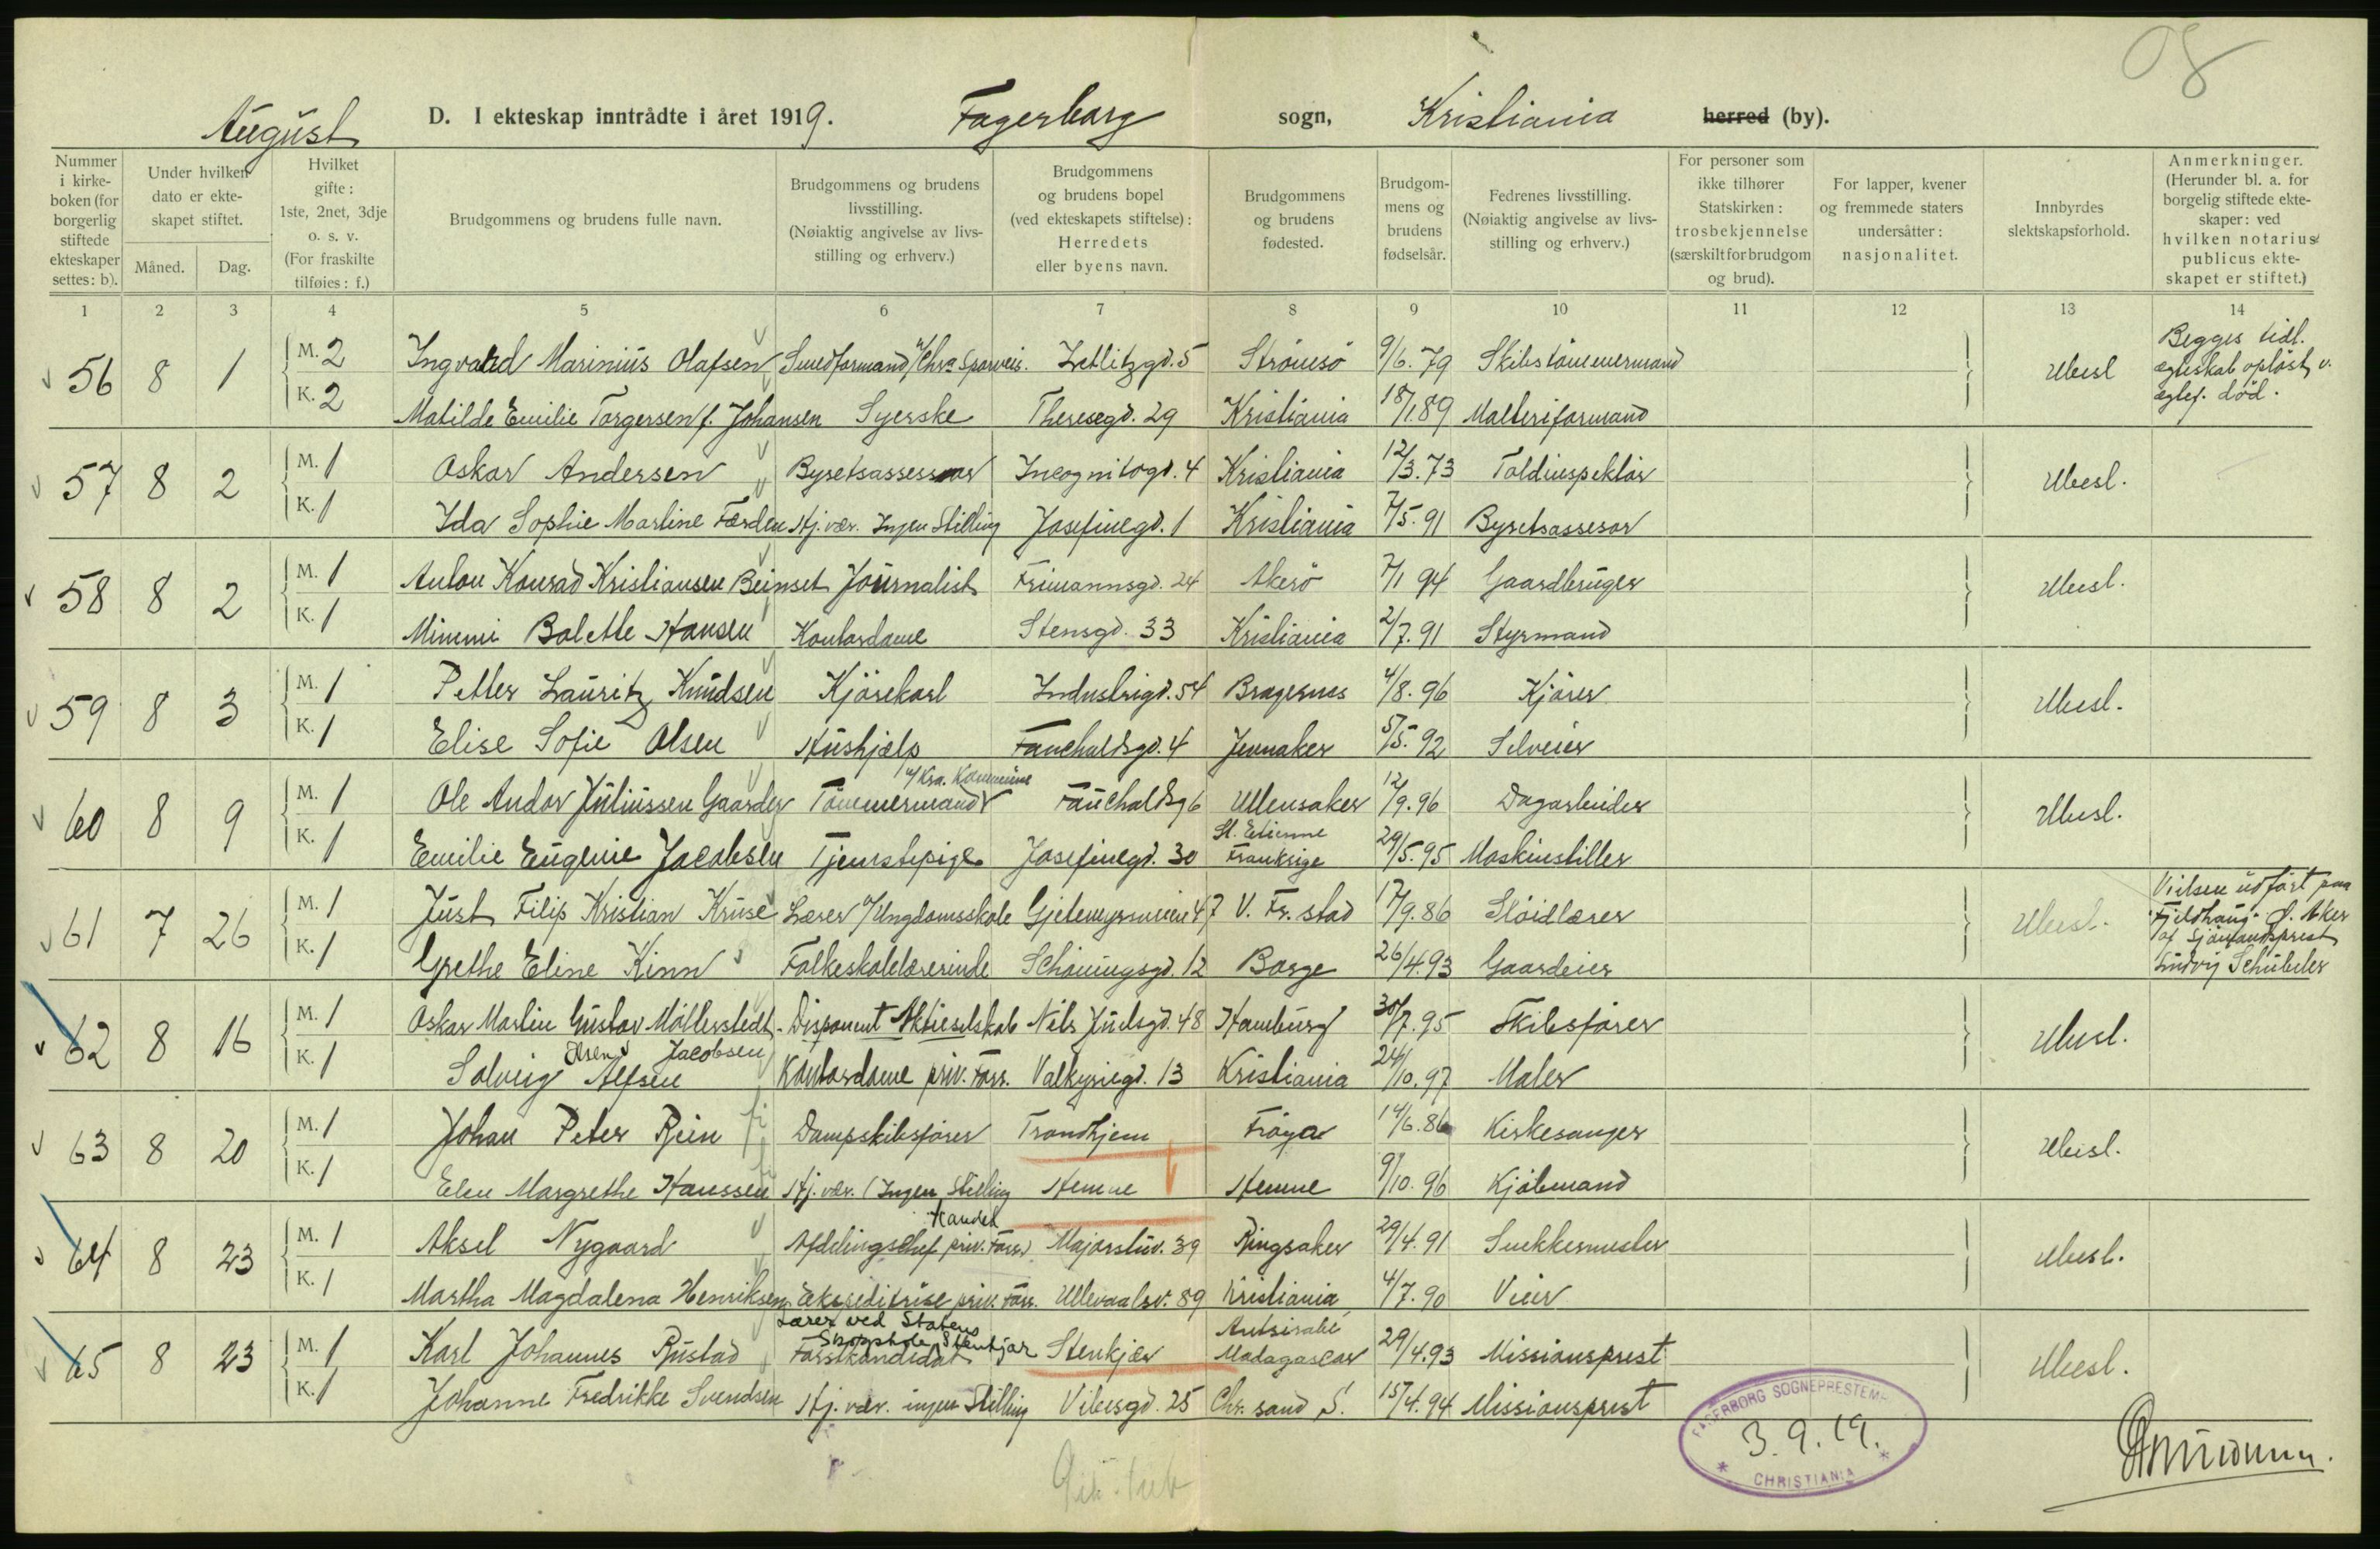 August
D. I ekteskap inntrådte i året 1919. Fagerborg sogn, Kristiania herred (by).
Nummer i kirke-boken (for borgerlig stiftede ekteskaper settes: b).
Under hvilken dato er ekte-skapet stiftet.
Måned. Dag.
Hvilket gifte: 1ste, 2net, 3dje o. s. v. (For fraskilte tilføies: f.)
Brudgommens og brudens fulle navn.
Brudgommens og brudens livsstilling. (Nøiaktig angivelse av livs-stilling og erhverv.)
Brudgommens og brudens bopel (ved ekteskapets stiftelse): Herredets eller byens navn.
Brudgommens og brudens fødested.
Brudgom-mens og brudens fødselsår.
Fedrenes livsstilling. (Nøiaktig angivelse av livs-stilling og erhverv.)
For personer som ikke tilhører Statskirken: trosbekjennelse (særskilt for brudgom og brud).
For lapper, kvener og fremmede staters undersåtter: nasjonalitet.
Innbyrdes slektskapsforhold.
Anmerkninger. (Herunder bl. a. for borgelig stiftede ekte-skaper: ved hvilken notarius publicus ekte-skapet er stiftet.)
1 2 3 4 5 6 7 8 9 10 11 12 13 14
56 8 1 M. 2 Ingvald Marinius Olafsen Smedformand v/Chra Sporveis. Zetlitzgd. 5 Strömsö 9/6. 79 Skibstömmermand Ubesl Begges tidl. egteskab opløst v. egtef. död.
K. 2 Matilde Emilie Torgersen f. Johansen Syerske Theresegd. 29 Kristiania 18/1 89 Malteriformand
57 8 2 M. 1 Oskar Andersen Byretsassessor Incognitogd. 4 Kristiania 12/3. 73 Toldinspektör Ubesl.
K. 1 Ida Sophie Martine Færden Hj. vær. Ingen Stilling Josefinegd. 1 Kristiania 7/5. 91 Byretsassesor
58 8 2 M. 1 Anton Konrad Kristiansen Beinset Journalist Frimannsgd. 24 Akerö 7/1 94 Gaardbruger Ubesl.
K. 1 Mimmi Bolette Hansen Kontordame Stensgd. 33 Kristiania 2/7. 91 Styrmand
59 8 3 M. 1 Petter Lauritz Knudsen Kjörekarl Industrigd. 54 Bragernes 4/8. 96 Kjörer Ubesl.
K. 1 Elise Sofie Olsen Hushjælp Fauchaldsgd. 4 Jevnaker 5/5. 92 Selveier
60 8 9 M. 1 Ole Andor Juliussen Gaarder Tömmermand v/ Kra. Kommune Fauchaldsg 6 Ullensaker 12/9. 96 Dagarbeider Ubesl.
K. 1 Emilie Eugenie Jacobsen Tjenestepige Josefinegd. 30 St. Etienne Frankrige 29/5. 95 Maskinstiller
61 7 26 M. 1 Just Filip Kristian Kruse Lærer v/ Ungdomsskole Gjetemyrsveien 47 V. Fr. stad 17/9. 86 Slöidlærer Ubesl. Vielsen udført paa "Fjeldhaug" Ø. Aker af Sjömandsprest Ludvig Schübeler
K. 1 Grethe Eline Kinn Folkeskolelærerinde Schöningsgd. 12 Borge 26/4. 93 Gaardeier
62 8 16 M. 1 Oskar Martin Gustav Möllerstedt Disponent Aktieselskab Nils Juelsgd. 48 Hamburg 30/7. 95 Skibsförer Ubesl.
K. 1 Solveig Olsen Alfsen Jacobsen Kontordame priv. Forr. Valkyriegd. 13 Kristiania 24/10. 97 Maler
63 8 20 M. 1 Johan Peter Rein Dampskibsförer Trondhjem Fröya 14/6. 86 Kirkesanger Ubesl.
K. 1 Elen Margrethe Hanssen Hj. vær. (Ingen Stilling Hemne Hemne 9/10. 96 Kjöbmand
64 8 23 M. 1 Aksel Nygaard Afdelingschef priv. Forr. Handel Majorstuv. 39 Ringsaker 29/4. 91 Snekkermester Ubesl.
K. 1 Martha Magdalena Henriksen Ekspeditrise priv. Forr. Ullevaalsv. 89 Kristiania 4/7. 90 Vever
65 8 23 M. 1 Karl Johannes Rustad Lærer ved Statens Skogskole Stenkjær Forstkandidat Stenkjær Antsirabé Madagascar 29/4. 93 Missionsprest Ubesl.
K. 1 Johanne Fredrikke Svendsen Hj. vær. ingen Stilling Vibesgd. 25 Chr. sand S. 15/4. 94 Missionsprest
FAGERBORG SOGNEPRESTEMB
3.9.19.
CHRISTIANIA